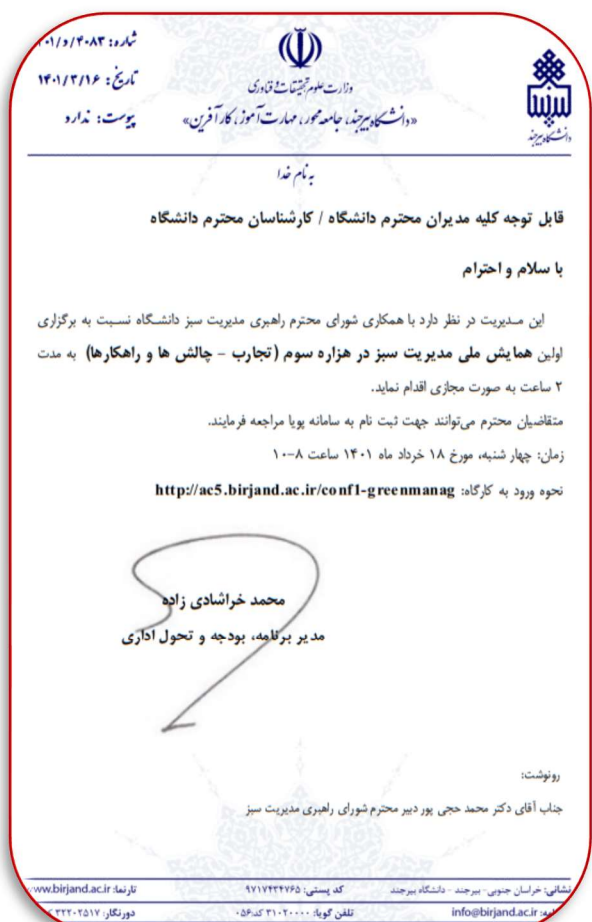 شماره: ۴۰۸۳/و/۰۱
تاریخ: ۱۴۰۱/۳/۱۶
پیوست: ندارد
وزارت علوم تحقیقات و فناوری
«دانشگاه بیرجند، جامعه محور، مهارت آموز، کارآفرین»
دانشگاه بیرجند
به نام خدا
قابل توجه کلیه مدیران محترم دانشگاه / کارشناسان محترم دانشگاه
با سلام و احترام
این مـدیریت در نظر دارد با همکاری شورای محترم راهبری مدیریت سبز دانشـگاه نسـبت به برگزاری
اولین همایش ملی مدیریت سبز در هزاره سوم (تجارب - چالش ها و راهکارها) به مدت
۲ ساعت به صورت مجازی اقدام نماید.
متقاضیان محترم می‌توانند جهت ثبت نام به سامانه پویا مراجعه فرمایند.
زمان: چهار شنبه، مورخ ۱۸ خرداد ماه ۱۴۰۱ ساعت ۸-۱۰
نحوه ورود به کارگاه: http://ac5.birjand.ac.ir/conf1-greenmanag
محمد خراشادی زاده
مدیر برنامه، بودجه و تحول اداری
رونوشت:
جناب آقای دکتر محمد حجی پور دبیر محترم شورای راهبری مدیریت سبز
نشانی: خراسان جنوبی- بیرجند - دانشگاه بیرجند
کد پستی: ۹۷۱۷۴۳۴۷۶۵
تارنما: www.birjand.ac.ir
info@birjand.ac.ir
تلفن گویا: ۳۱۰۲۰۰۰۰ کد:۰۵۶
دورنگار: ۳۲۲۰۲۵۱۷